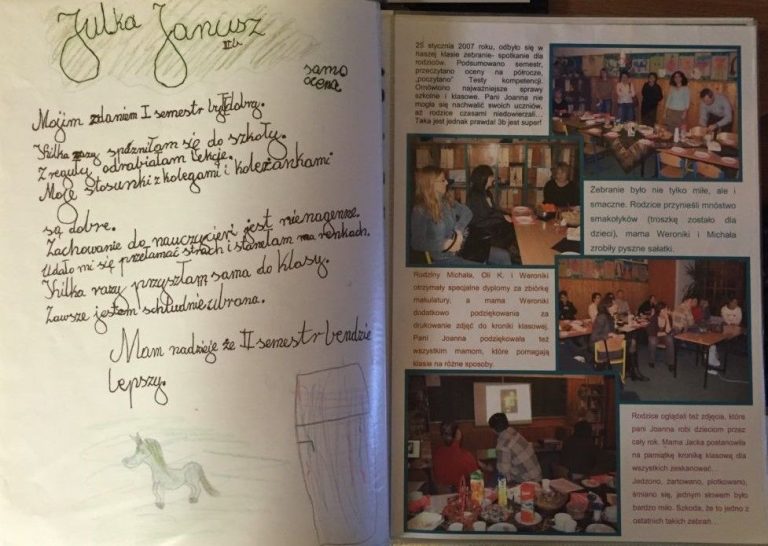 Julka Janusz
III b.
samo
ocena
Moim zdaniem I semestr był dobry.
Kilka razy spóźniłam się do szkoły.
Z reguły odrabiałam lekcje.
Moje stosunki z kolegami i koleżankami
są dobre.
Zachowanie do nauczycieri jest nienagenne.
Udało mi się przełamać strach i stanełam na renkach.
Kilka razy przyszłam sama do klasy.
Zawsze jestem schludnie ubrana.
Mam nadzieje że II semestr bendzie
lepszy.
25 stycznia 2007 roku, odbyło się w
naszej klasie zebranie- spotkanie dla
rodziców. Podsumowano semestr,
przeczytano oceny na półrocze,
„poczytano” Testy kompetencji.
Omówiono najważniejsze sprawy
szkolne i klasowe. Pani Joanna nie
mogła się nachwalić swoich uczniów,
aż rodzice niedowierzali…
Taka jest jednak prawda! 3b jest super!
Zebranie było nie tylko miłe, ale i
smaczne. Rodzice przynieśli mnóstwo
smakołyków (troszkę zostało dla
dzieci), mama Weroniki i Michała
zrobiły pyszne sałatki.
Rodziny Michała, Oli K. i Weroniki
otrzymały specjalne dyplomy za zbiórkę
makulatury, a mama Weroniki
dodatkowo podziękowania za
drukowanie zdjęć do kroniki klasowej.
Pani Joanna podziękowała też
wszystkim mamom, które pomagają
klasie na różne sposoby.
Rodzice oglądali też zdjęcia, które
pani Joanna robi dzieciom przez
cały rok. Mama Jacka postanowiła
na pamiątkę kronikę klasową dla
wszystkich zeskanować…
Jedzono, żartowano, plotkowano,
śmiano się, jednym słowem było
bardzo miło. Szkoda, że to jedno z
ostatnich takich zebrań…